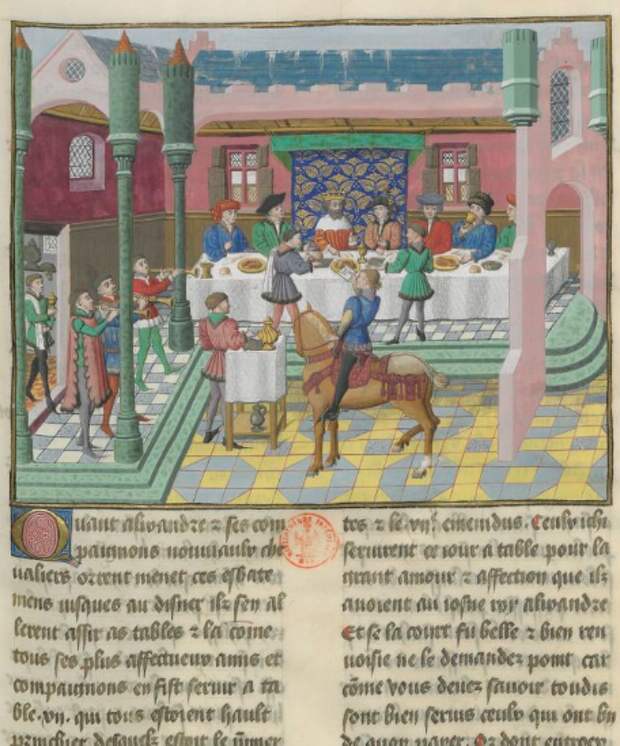 Quant alixandre ⁊ ses com
paignons nouuiaulx che
ualiers orrent menet ces esbate
mens iusques au disner ilz sen al
lerent assir as tables ⁊ la
tous ses plus affectueux amis et
compaignons en fist seruir a ta
ble .vij. qui tous estoient hault
estoit le
tres ⁊ le emenidus. Ceulx ichi
seruirent ce iour a table pour la
grant amour ⁊ affection que ilz
auoient au iosne roy alixandre
Et se la court fu belle ⁊ bien ren
uoisie ne le demandez point car
cõme vous deuez sauoir toudis
sont bien seruis ceulx qui ont
de quoy paier. Or dont